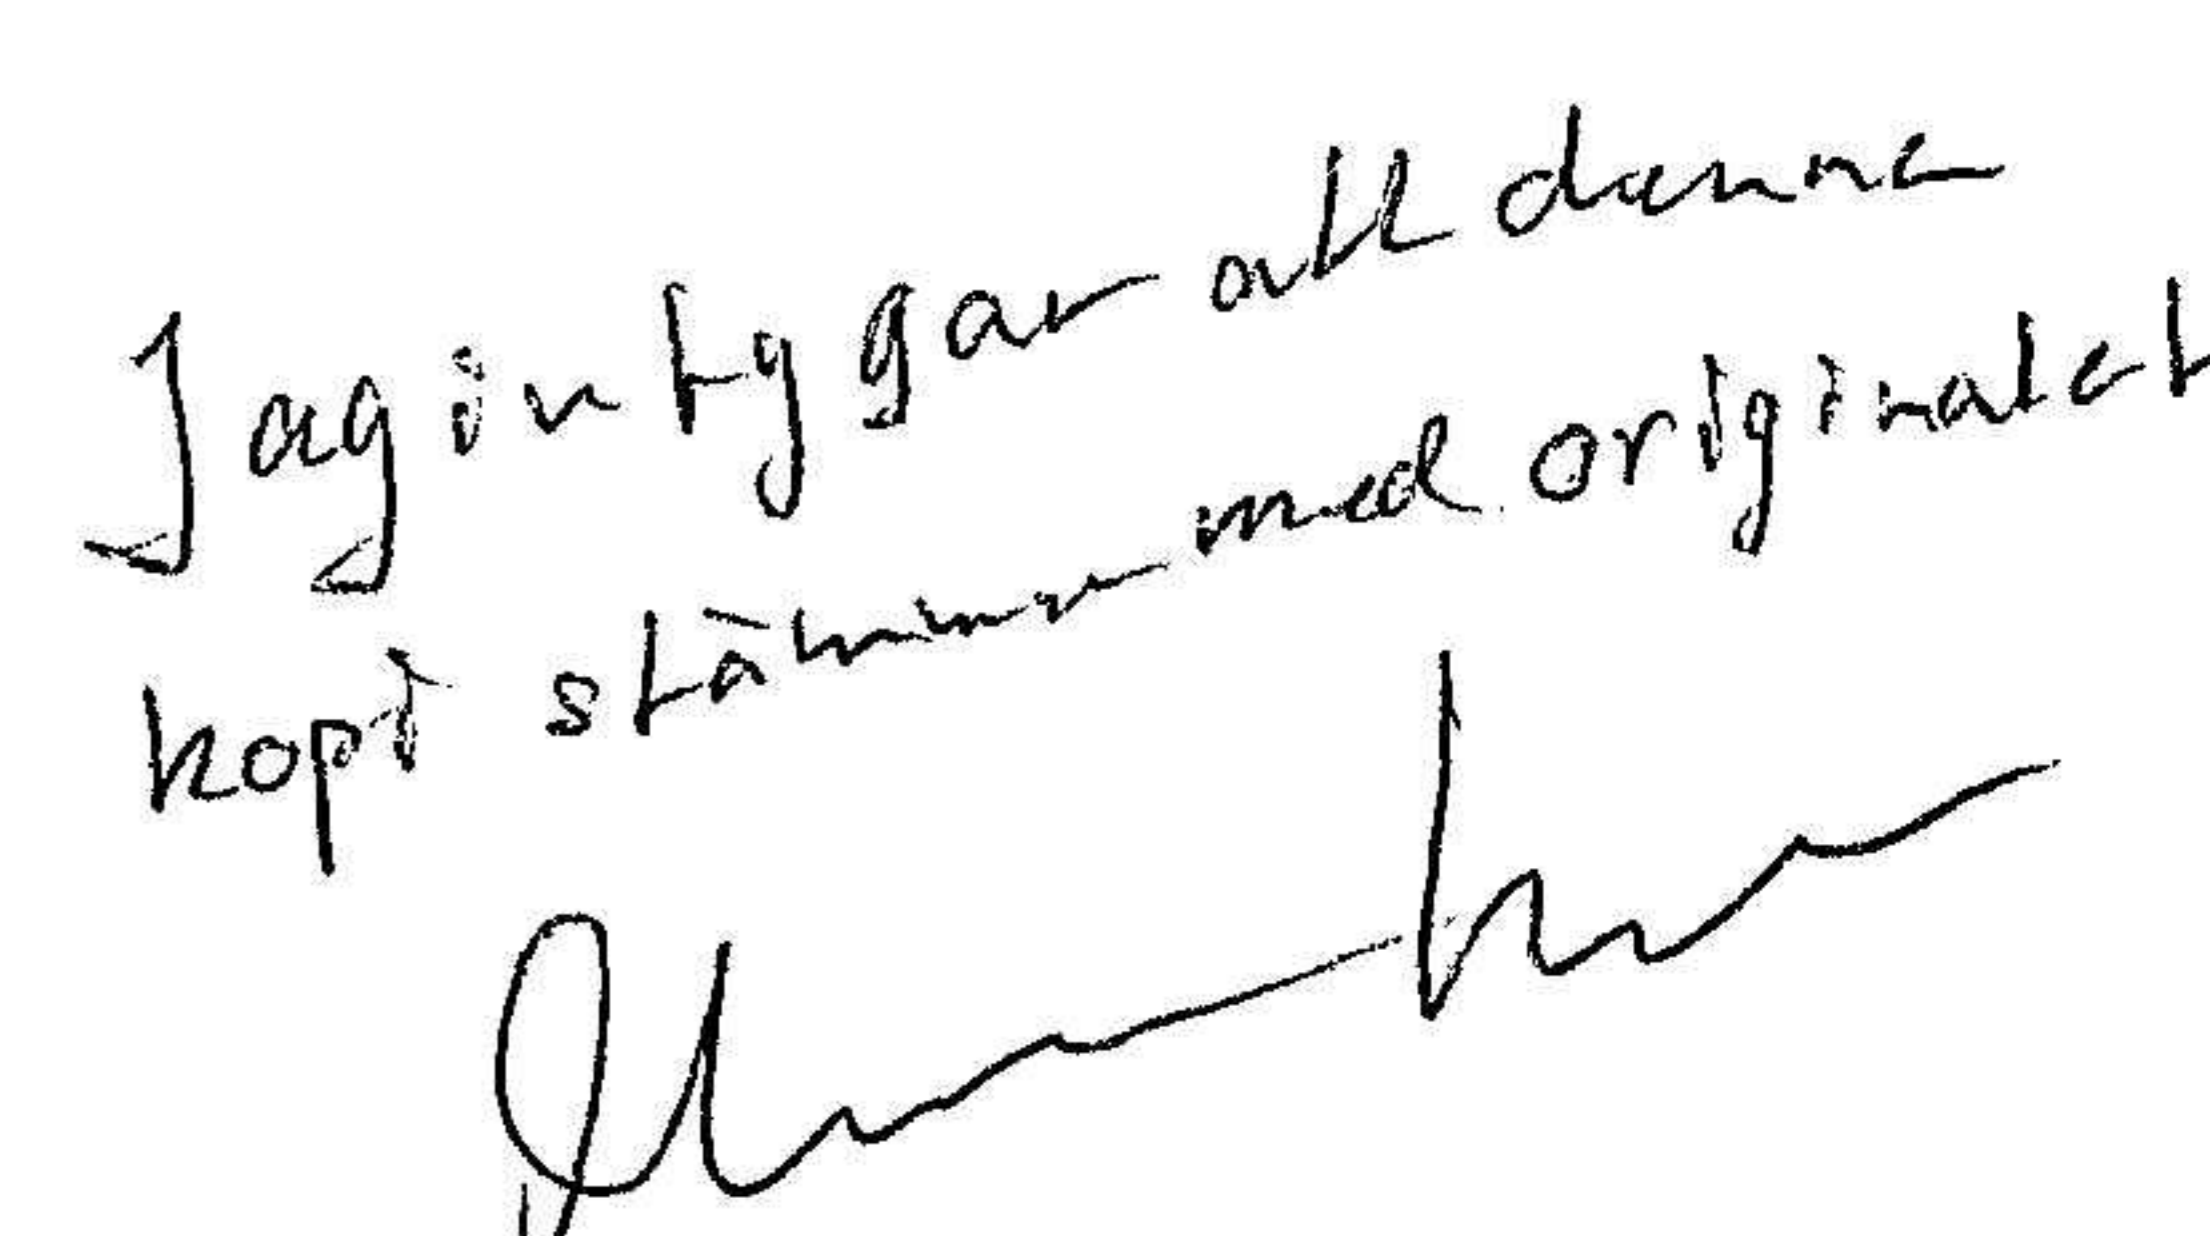 Jag intygar att denna
kopi stämmer med originalet